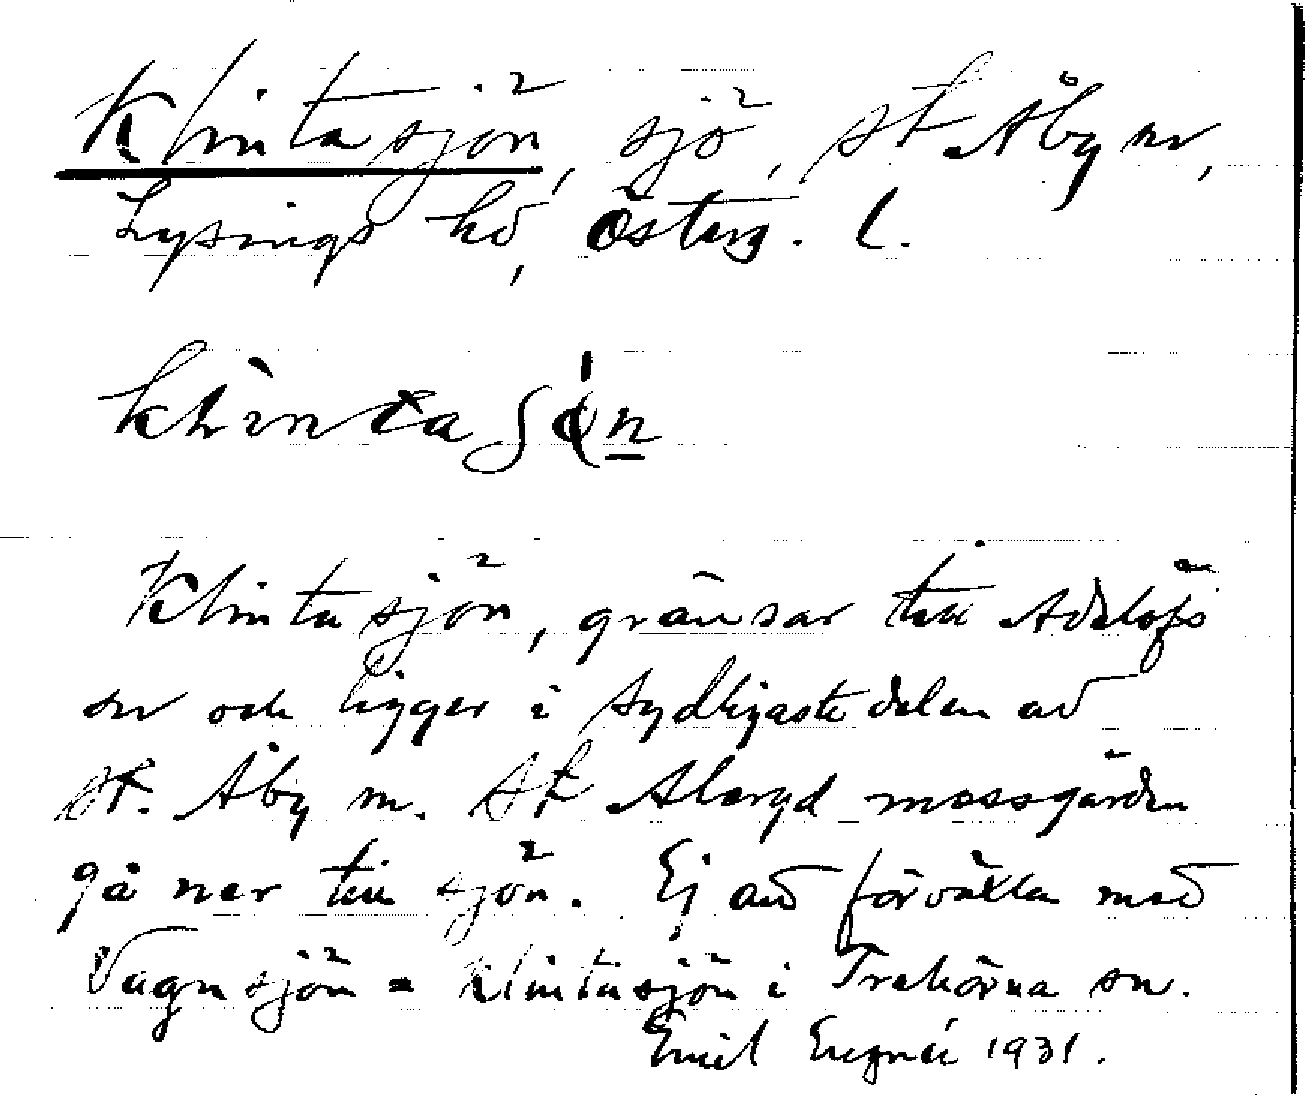 Klintasjön, sjö, St Åby sn,
Lysings hd, Österg. l.
Klintasjön, gränsar till Adelöfs
sn och ligger i sydligaste delen av
St. Åby sn. St Ålaryd mossgården
gå ner till sjön. Ej att förväxla med
Vagnsjön = Klintasjön i Trehörna sn.
Emil 1931.